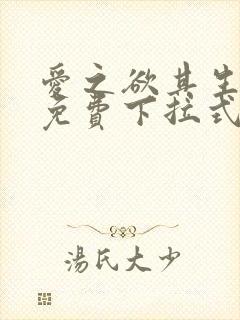 愛之欲其生
免費下拉式
湯氏大少